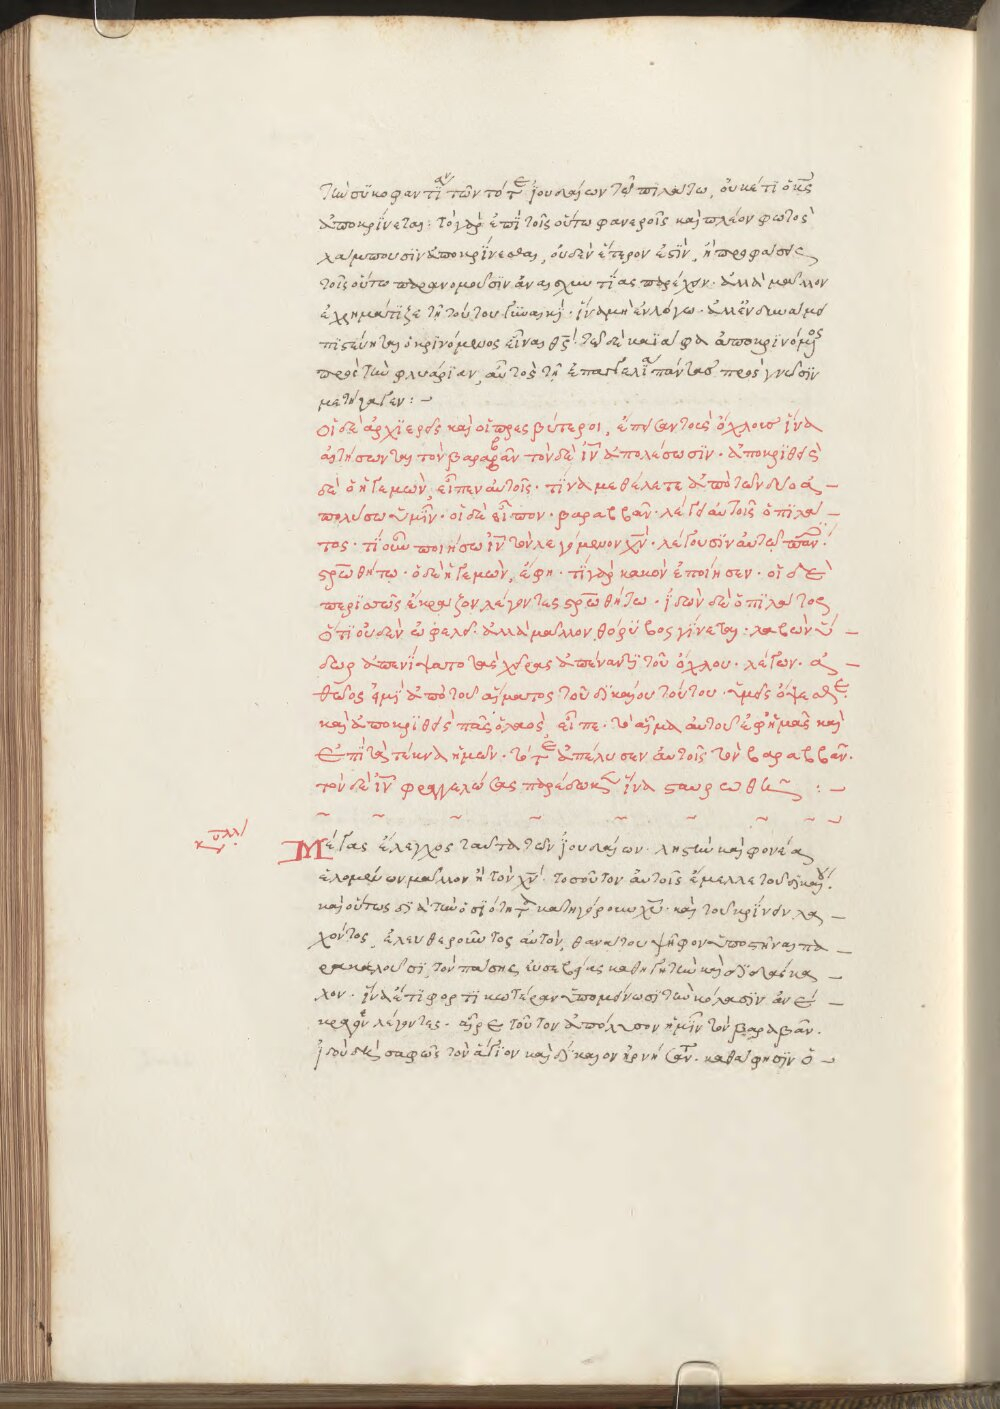 τὴν συκοφαντίαν τῶν τότε ἰουδαίων τῶ πιλάτω, οὐκέτι ὁ κς
ἀποκρίνεται· τὸ γὰρ ἐπὶ τοῖς οὕτω φανεροῖς καὶ πλέον φωτὸς
λάμπουσιν ἀποκρίνεσθαι, οὐδὲν ἕτερον ἐστὶν, ἢ προφάσεις
τοῖς οὕτω παρανομοῦσιν ἀναισχυντίας παρέχειν· ἀλλὰ μᾶλλον
ἐχρημάτιζε τῆ τούτου γυναικὶ· ἵνα μὴ ἐν λόγω· ἀλλ' ἐν δυνάμει
πιστεύηται ὁ κρινόμενος εἶναι θς· τῶ δὲ καϊάφα ἀποκρινόμενος
πρὸς τὴν φλυαρίαν, αὐτὸς τῆ ἐπαγγελία πάντας πρὸς γνῶσιν
μετήγαγεν :–
Οἱ δὲ ἀρχιερεῖς καὶ οἱ πρεσβύτεροι, ἔπεισαν τοὺς ὄχλους ἵνα
αἰτήσωνται τὸν βαραββᾶν τὸν δὲ ἰν ἀπολέσωσιν· ἀποκριθεὶς
δὲ ὁ ἡγεμὼν, εἶπεν αὐτοῖς· τίνα με θέλετε ἀπὸ τῶν δύο ἀ–
πολύσω ὑμῖν· οἱ δὲ εἶπον· βαραββᾶν· λέγει αὐτοῖς ὁ πιλά–
τος· τί οὖν ποιήσω ἰν τὸν λεγόμενον χν· λέγουσιν αὐτῶ πάντες·
σταυρωθήτω· ὁ δὲ ἡγεμὼν, ἔφη· τί γὰρ κακὸν ἐποίησεν· οἱ δὲ
περισσῶς ἔκραζον λέγοντες σταυρωθήτω· ἰδὼν δὲ ὁ πιλάτος
ὅτι οὐδὲν ὠφελεῖ· ἀλλὰ μᾶλλον θόρυβος γίνεται· λαβὼν ὕ–
δωρ ἀπενίψατο τὰς χεῖρας ἀπέναντι τοῦ ὄχλου· λέγων· ἀ–
θῶος εἰμὶ ἀπὸ τοῦ αἵματος τοῦ δικαίου τούτου· ὑμεῖς ὄψεσθε·
καὶ ἀποκριθεὶς πᾶς ὁ λαὸς, εἶπε· τὸ αἷμα αὐτοῦ ἐφ' ἡμᾶς καὶ
ἐπὶ τὰ τέκνα ἡμῶν· τότε ἀπέλυσεν αὐτοῖς τὸν βαραββᾶν·
τὸν δὲ ἰν φραγγελώσας παρέδωκεν ἵνα σταυρωθῆ :–
κυριλλ
Μέγας ἔλεγχος ταῦτα τῶν ἰουδαίων· ληστὴν καὶ φονέα
ἑλομένων μᾶλλον ἢ τὸν χν· τοσοῦτον αὐτοῖς ἔμελλε τοῦ δικαίου·
καὶ οὕτως διὰ τὴν ὁσιότητα κατηγόρουν χυ· καὶ τοῦ κρίνειν λα–
χόντος, ἐλευθεροῦντος αὐτὸν, θανάτου ψῆφον ὑποστῆναι πα–
ρακαλοῦσι, τὸν πάσης εὐσεβείας καθηγητὴν καὶ διδάσκα–
λον· ἵνα ἔτι φορτικωτέραν ὑπομείνωσι τὴν κόλασιν ἀνέ–
κραγον λέγοντες· αἶρε τοῦτον ἀπόλυσον ἡμῖν τὸν βαραβᾶν·
ἰδοὺ δὴ σαφῶς τὸν ἅγιον καὶ δίκαιον ἠρνήσαντο· καθά φησιν ὁ –